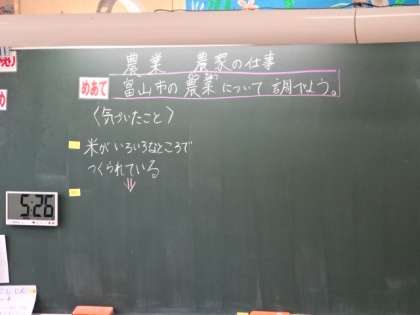 農業 農家の仕事
めあて 富山市の農業について調べよう。
〈気づいたこと〉
米がいろいろなところで
つくられている
5:26